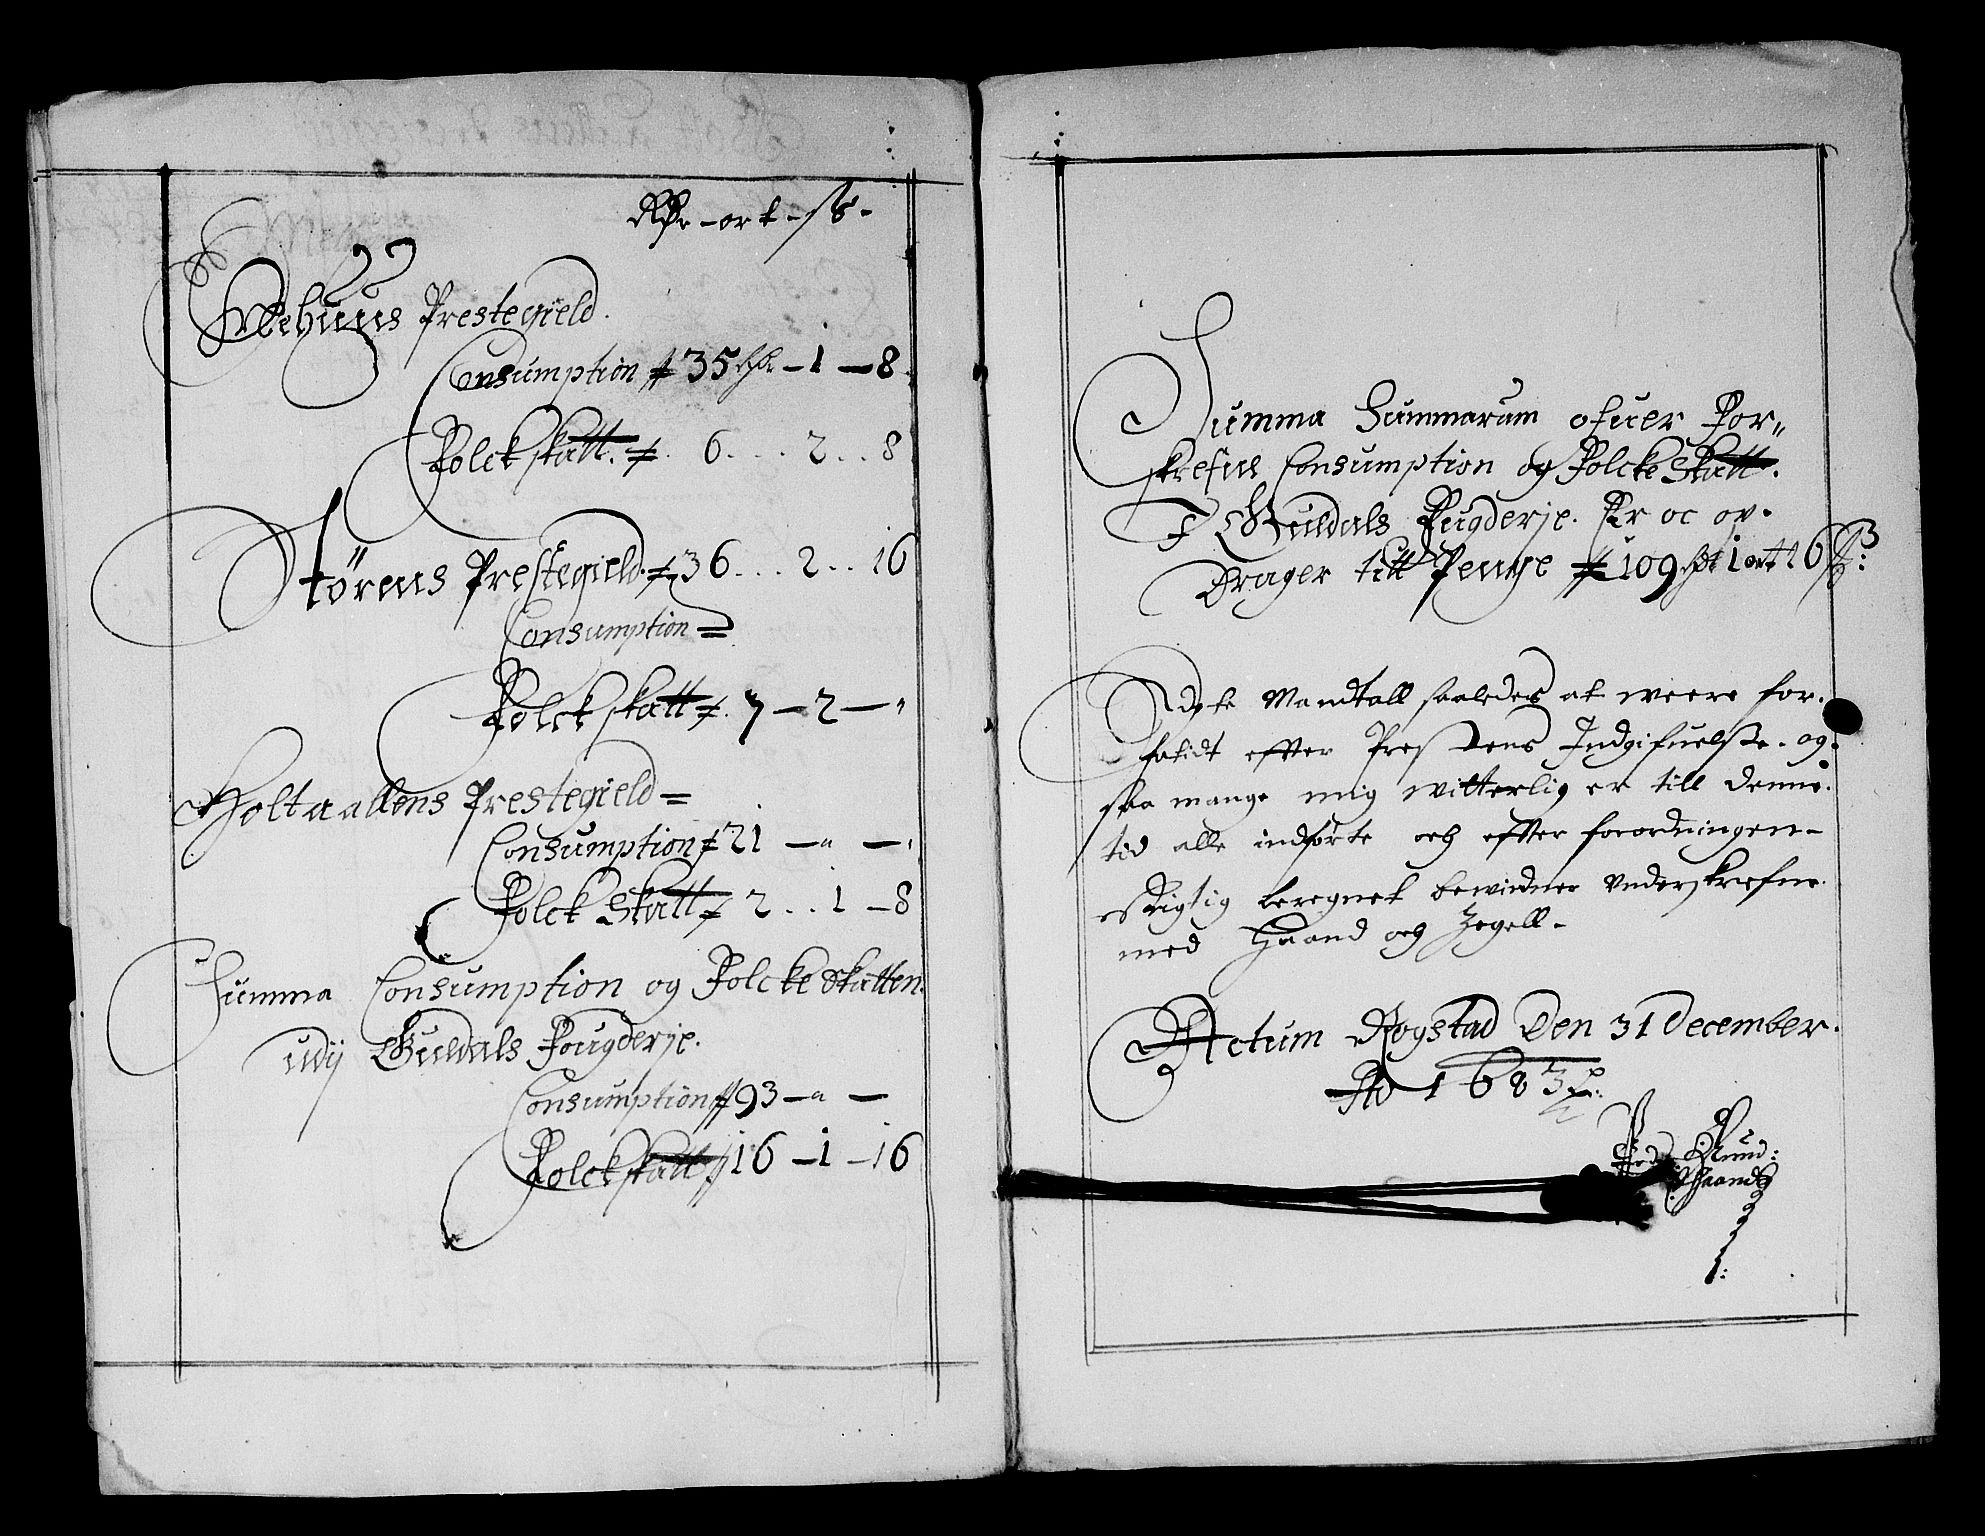 Rdr – ort – ß –
Mehuus Prestegield.
Consumption 35 rdr – 1 – 8.
Folckskatt. 6 . . . 2 . . 8
Störens Prestegield 36 . . . 2 . . 16
Consumption =
Folckskatt. 7 – 2 – "
Holtaallens Prestegield =
Consumption 21 – " – "
Folck Skatt 2 . . 1 – 8
Summa Consumption og Folcke Skatten
udij Guldals Fougderje.
Consumption 93 – " –
Folckskatt 16 – 1 – 16
Summa Summarum ofuer For„
skrefne Consumption og Folcke Skatt.
I Guldals Fugderje. Er oc op-
Drager till Penge 109 rdr 1 ort 16 ß:
At dete Mandtall saaledes at weere for-
fatidt effter Prestens Indgifuelsse. og
saa mange mig witterlig er till denne
tid alle indførte och effter forordningen –
Rigtig beregnet bewidner Underskrefne
med Haand och Zegell –
Actum Rogstad Den 31 December.
Ao 1683
Ped Rund:
Haand